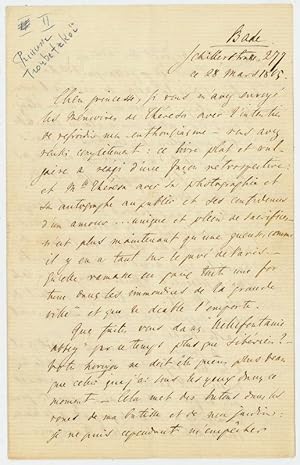 II
Princesse
Troubetzkoï
Bade
Schillerstrasse, 277
ce 28 Mars 1865.
Chère princesse, si vous m'avez envoyé
les Mémoires de Thérésa avec l'intention
de refroidir mon enthousiasme – vous avez
réussi complètement : ce livre plat et vul-
gaire a réagi d'une façon rétrospective :
et Mlle Thérésa avec sa photographie et
son autographe au public et ses confidences
d'un amour... unique et plein de sacrifices
n'est plus maintenant qu'une gueuse comme
il y en a tant sur le pavé de Paris. –
Qu'elle ramasse en paix toute une for
tune dans les immondices de la grande
ville – et que le diable l'emporte.
Que faites vous dans Bellefontaine
abbey par ce temps plus que Sibérien? –
Votre horizon ne doit être guère plus beau
que celui que j'ai sous les yeux dans ce
moment – Cela met des bâtons dans les
roues de ma bâtisse et de mon jardin :
je ne puis cependant m'empêcher